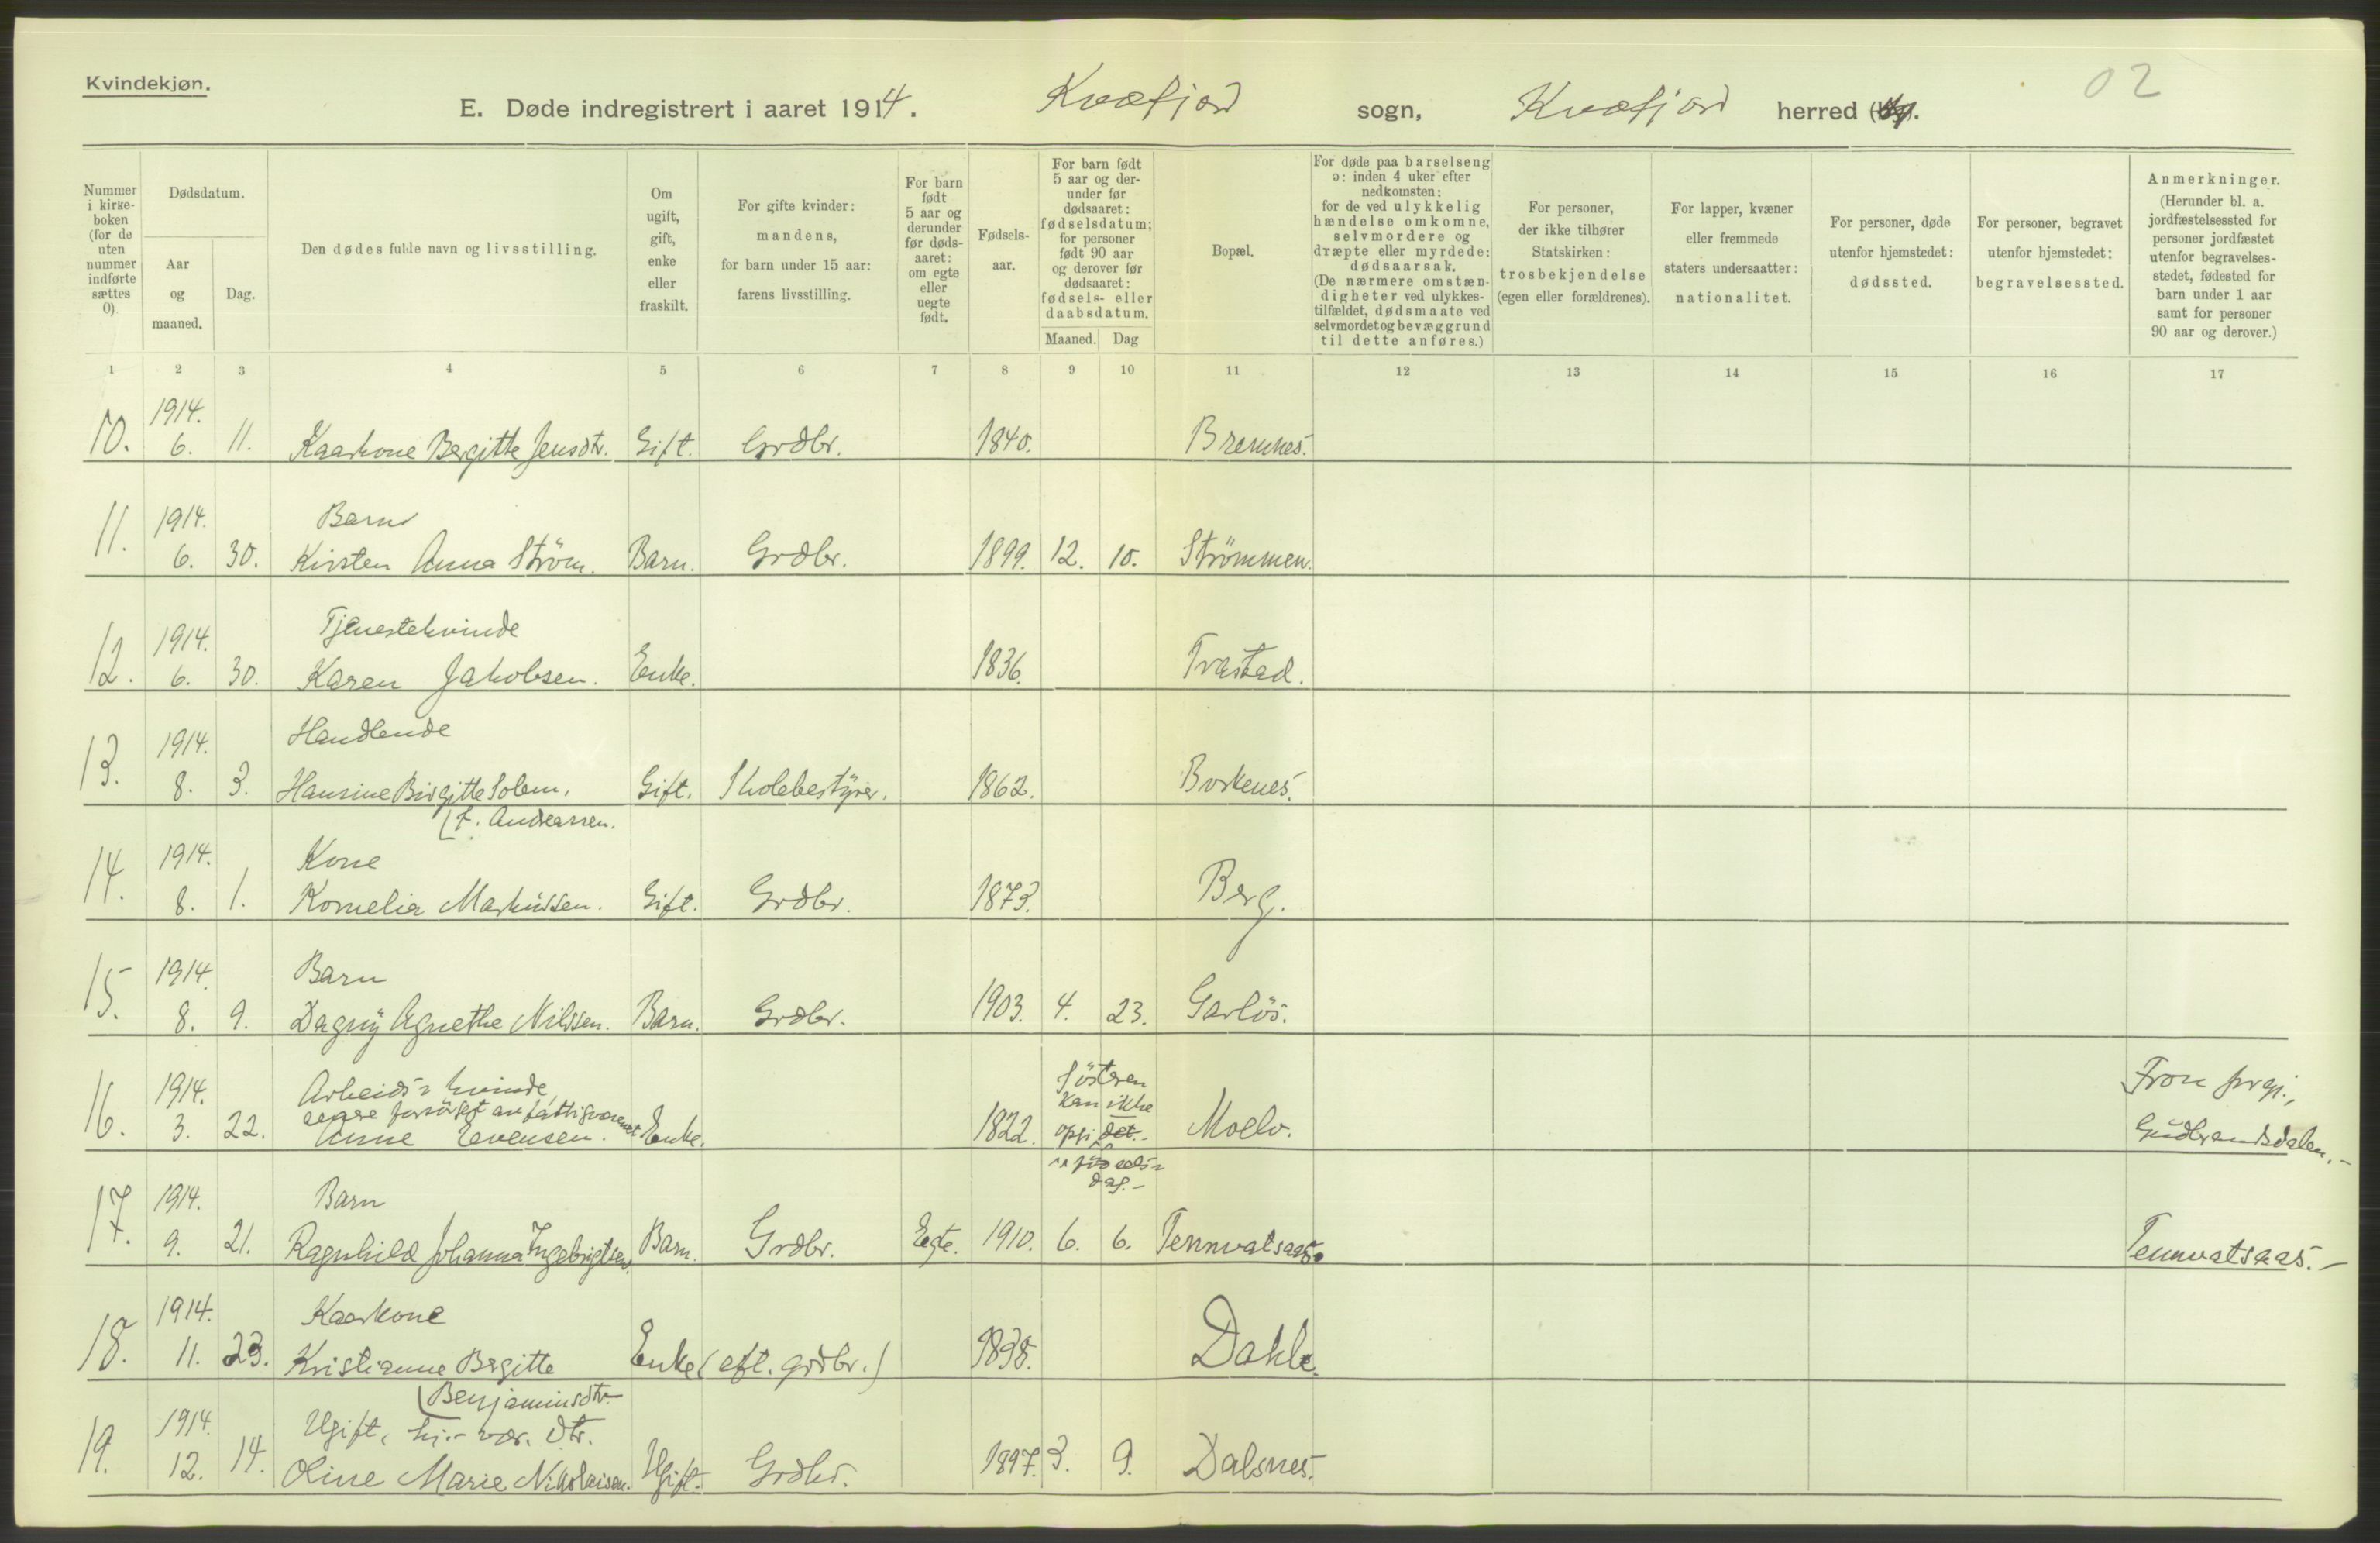 Kvindekjøn.
02
E. Døde indregistrert i aaret 1914. Kvæfjord sogn, Kvæfjord herred
Nummer i kirke-boken (for de uten nummer indførte sættes 0).
Dødsdatum.
Aar og maaned.
Dag.
Den dødes fulde navn og livsstilling.
Om ugift, gift, enke eller fraskilt.
For gifte kvinder: mandens, for barn under 15 aar: farens livsstilling.
For barn født 5 aar og derunder før døds-aaret: om egte eller uegte født.
Fødsels-aar.
For barn født 5 aar og der-under før dødsaaret: fødselsdatum; for personer født 90 aar og derover før dødsaaret: fødsels- eller daabsdatum.
Maaned. Dag
Bopæl.
For døde paa barselseng ɔ: inden 4 uker efter nedkomsten: for de ved ulykkelig hændelse omkomne, selvmordere og dræpte eller myrdede: dødsaarsak. (De nærmere omstæn-digheter ved ulykkes-tilfældet, dødsmaate ved selvmord et og bevæggrund til dette anføres.)
For personer, der ikke tilhører Statskirken: trosbekjendelse (egen eller forældrenes).
For lapper, kvæner eller fremmede staters undersaatter: nationalitet.
For personer, døde utenfor hjemstedet: dødssted.
For personer, begravet utenfor hjemstedet: begravelsessted.
Anmerkninger. (Herunder bl. a. jordfæstelsessted for personer jordfæstet utenfor begravelses-stedet, fødested for barn under 1 aar samt for personer 90 aar og derover.)
1 2 3 4 5 6 7 8 9 10 11 12 13 14 15 16 17
1914.
10. 6. 11. Kaarkone Bergitte Jensdtr. Gift. Grdbr. 1840. Bremnes.
1914. Barn
11. 6. 30. Kirsten Anna Ström. Barn. Grdbr. 1899. 12. 10. Strömmen.
1914. Tjenestekvinde
12. 6. 30. Karen Jakobsen. Enke. 1836. Trastad.
1914. Handlende
13. 8. 3. Hansine Birgitte Solem, Gift. Skolebestyrer. 1862. Borkenes.
(f. Andreassen.
1914. Kone
14. 8. 1. Kornelia Markussen. Gift. Grdbr. 1873. Berg.
1914. Barn
15. 8. 9. Dagny Agnethe Nilssen. Barn. Grdbr. 1903. 4. 23. Garlös.
1914. Arbeids- kvinde, Sösteren Fron prgj.,
senere forsörget av fattigvæsenet kan ikke
16. 3. 22. Anne Evensen. Enke. 1822. opgi det. Moelv. Gudbrandsdalen.-
födsels-
dag.-
1914. Barn
17. 9. 21. Ragnhild Johanna Ingebrigtsen. Barn. Grdbr. Egte. 1910. 6. 6. Tennvatsaas. Tennvatsaas.-
1914. Kaarkone
18. 11. 23. Kristianne Bergitte Enke (eft. grdbr.) 1838. Dahle.
(Benjaminsdtr.
1914. Ugift, hj.- vær. dtr.
19. 12. 14. Oline Marie Nikolaisen. Ugift. Grdbr. 1897. 3. 9. Dalsnes.